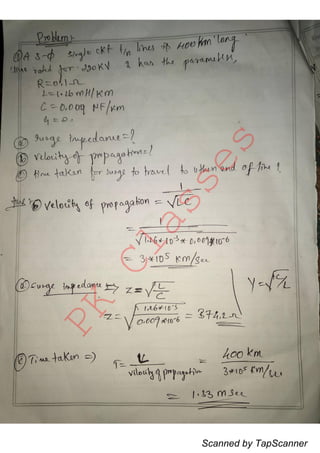 Problem:-
A 3-Φ single ckt t/n lines is 400km long.
line rated for 220KV & has the parameters,
R=0.1Ω
L=1.26mH/km
C=0.009 μF/km
G=0.
(a) surge Impedance=?
(b) velocity of propagation=?
(c) time taken for surge to travel to other end of line?
(b) velocity of propagation = 1/√LC
= 1/√1.26*10-3 * 0.009*10-6
= 3*10^5 KM/sec
(a) surge impedance => Z=√L/C
Z=√1.26*10-3/0.009*10-6 = 374.2Ω
Y=√C/L
(c) Time taken => T= L/velocity of propagation = 400 km/3*10^5 km/sec
= 1.33 m sec
PK Classes
Scanned by TapScanner